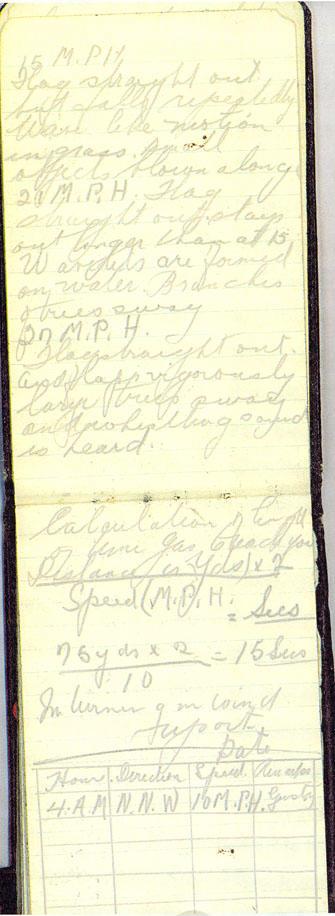 15 M.P.H
Flag straight out
but falls repeatedly
Wave like motion
in grass. Small
objects blown along
21 M.P.H. Flag
straight out stays
out longer than at 15.
Wavelets are formed
on water. Branches
of trees sway
27 M.P.H.
Flag straight out
and flaps vigorously
large trees sway
and whistling sound
is heard.
Calculation of length
of time gas
Distance (in Yds) x 2
Speed (M.P.H. = Secs
75 yds x 2 = 15 Secs
10
wind
report
Date
Hour Direction Speed Remarks
4.A.M N.N.W 10 M.P.H. Gusty